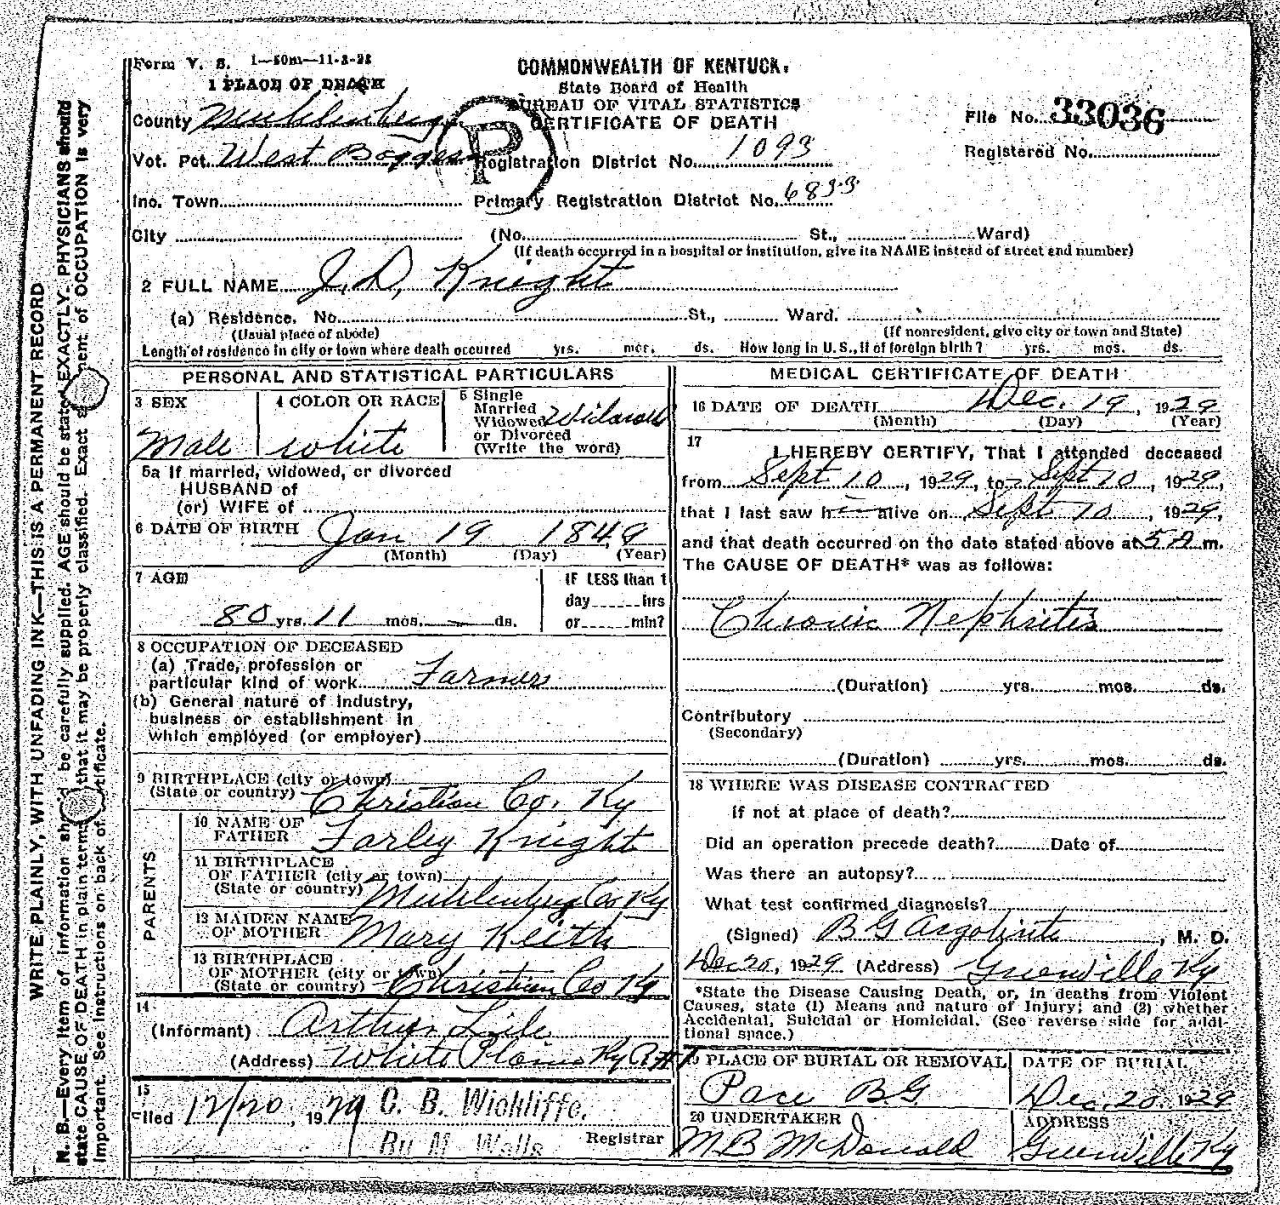 Form V. S. 1—50m—11-3-28
COMMONWEALTH OF KENTUCKY
State Board of Health
BUREAU OF VITAL STATISTICS
CERTIFICATE OF DEATH
P
File No. 33036
Registered No.
1 PLACE OF DEATH
County Muhlenburg
Vot. Pct. West Bogges
Registration District No. 1093
Inc. Town
Primary Registration District No. 6833
City (No. St., Ward)
(If death occurred in a hospital or institution, give its NAME instead of street and number)
2 FULL NAME J. D. Knight
(a) Residence. No. St., Ward.
(Usual place of abode) (If nonresident, give city or town and State)
Length of residence in city or town where death occurred yrs. mos. ds. How long in U. S., if of foreign birth? yrs. mos. ds.
PERSONAL AND STATISTICAL PARTICULARS
3 SEX
Male
4 COLOR OR RACE
white
5 Single
Married
Widowed
or Divorced
(Write the word)
Widowed
5a If married, widowed, or divorced
HUSBAND of
(or) WIFE of
6 DATE OF BIRTH Jan 19 1849
(Month) (Day) (Year)
7 AGE
80 yrs. 11 mos. — ds.
IF LESS than 1
day hrs
or min?
8 OCCUPATION OF DECEASED
(a) Trade, profession or
particular kind of work Farmer
(b) General nature of industry,
business or establishment in
which employed (or employer)
9 BIRTHPLACE (city or town)
(State or country) Christian Co. Ky
PARENTS
10 NAME OF
FATHER Farley Knight
11 BIRTHPLACE
OF FATHER (city or town)
(State or country) Muhlenburg Co Ky
12 MAIDEN NAME
OF MOTHER Mary Keith
13 BIRTHPLACE
OF MOTHER (city or town)
(State or country) Christian Co Ky
14
(Informant) Arthur Lile
(Address) White Plains Ky
15
Filed 12/20, 1929 C. B. Wickliffe.
By M. Wells
Registrar
MEDICAL CERTIFICATE OF DEATH
16 DATE OF DEATH Dec. 19, 1929
(Month) (Day) (Year)
17
I HEREBY CERTIFY, That I attended deceased
from Sept 10, 1929, to Sept 10, 1929,
that I last saw h alive on Sept 10, 1929,
and that death occurred on the date stated above at 5 A m.
The CAUSE OF DEATH* was as follows:
Chronic Nephrites
(Duration) yrs. mos. ds.
Contributory
(Secondary)
(Duration) yrs. mos. ds.
18 WHERE WAS DISEASE CONTRACTED
If not at place of death?
Did an operation precede death? Date of
Was there an autopsy?
What test confirmed diagnosis?
(Signed) B G Argobrite, M. D.
Dec 20, 1929 (Address) Greenville Ky
*State the Disease Causing Death, or, in deaths from Violent
Causes, state (1) Means and nature of Injury; and (2) whether
Accidental, Suicidal or Homicidal. (See reverse side for addi-
tional space.)
19 PLACE OF BURIAL OR REMOVAL
Pace B.G.
DATE OF BURIAL
Dec. 20. 1929
20 UNDERTAKER
M B McDonald
ADDRESS
Greenville Ky
WRITE PLAINLY, WITH UNFADING INK—THIS IS A PERMANENT RECORD
N. B.—Every item of information should be carefully supplied. AGE should be stated EXACTLY. PHYSICIANS should
state CAUSE OF DEATH in plain terms, that it may be properly classified. Exact statement of OCCUPATION is very
important. See instructions on back of certificate.